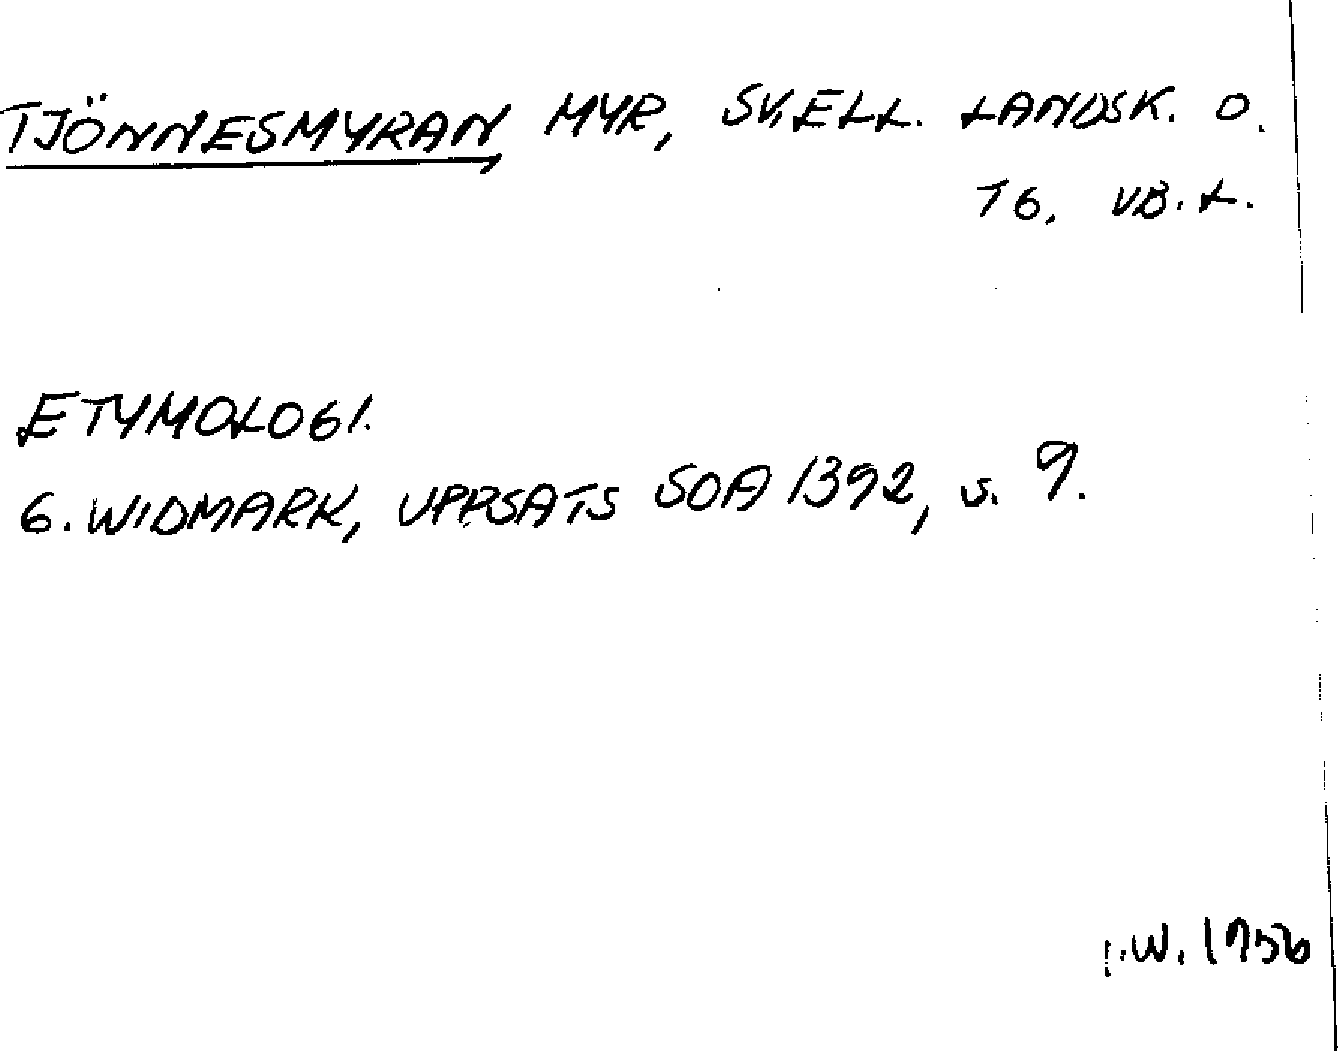 TJÖNNESMYRAN, MYR, SKELL. LANDSK. O.
TG, VB. L.
ETYMOLOGI.
G. WIDMARK, UPPSATS SOA 1392, s. 9.
W. 1956